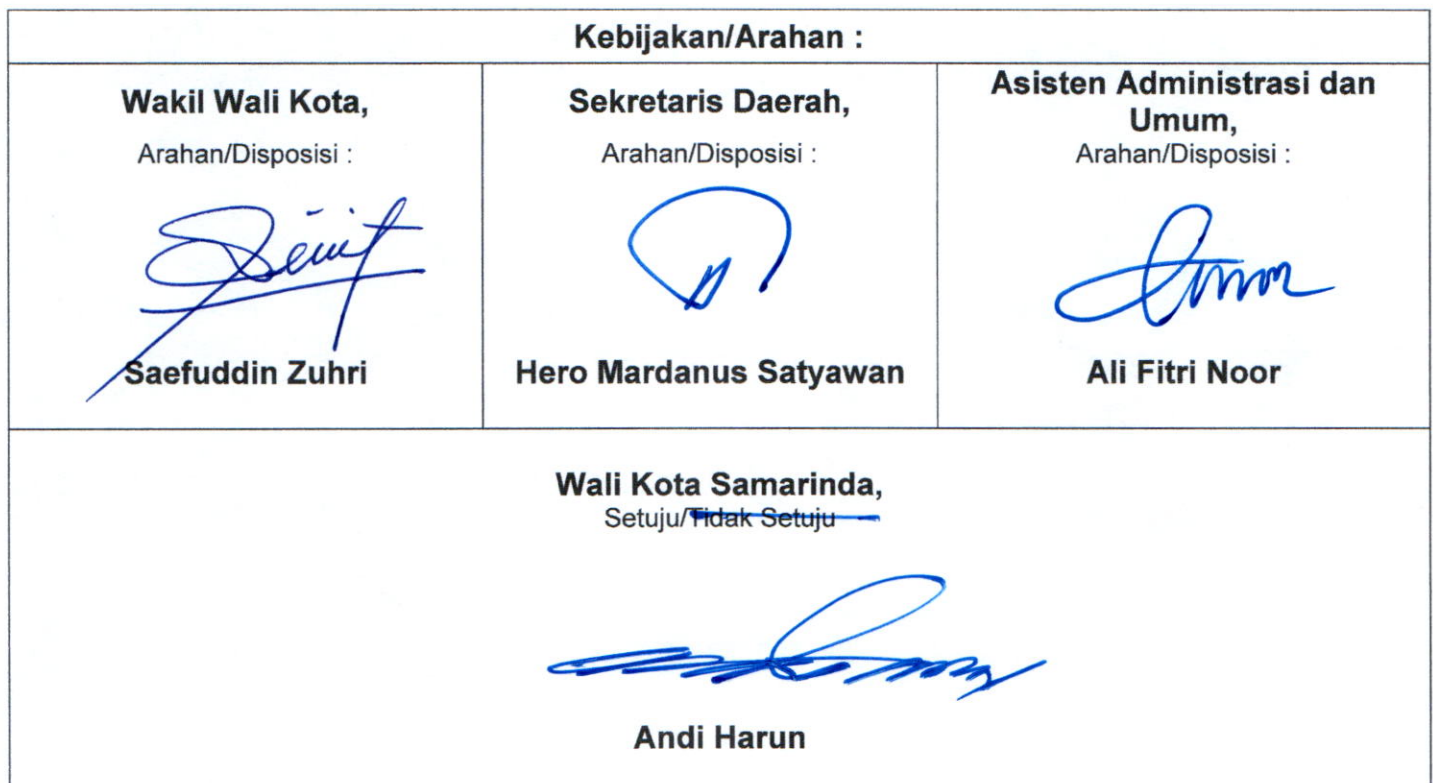 Kebijakan/Arahan :
Wakil Wali Kota,
Arahan/Disposisi :
Saefuddin Zuhri
Sekretaris Daerah,
Arahan/Disposisi :
Hero Mardanus Satyawan
Asisten Administrasi dan
Umum,
Arahan/Disposisi :
Ali Fitri Noor
Wali Kota Samarinda,
Setuju/Tidak Setuju
Andi Harun